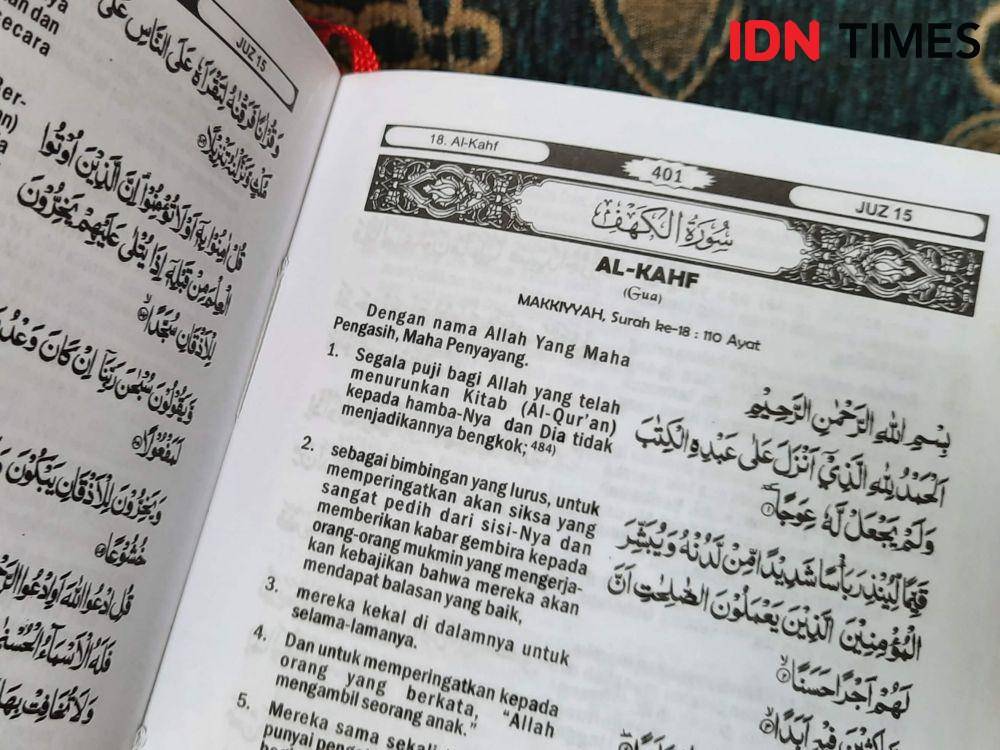 IDN TIMES
ecara
JUZ 15
وَقُرْاٰنًا فَرَقْنٰهُ لِتَقْرَاَهٗ عَلَى النَّاسِ عَلٰى
قُلْ اٰمِنُوْا بِهٖٓ اَوْ لَا تُؤْمِنُوْاۗ اِنَّ الَّذِيْنَ اُوْتُوا
الْعِلْمَ مِنْ قَبْلِهٖٓ اِذَا يُتْلٰى عَلَيْهِمْ يَخِرُّوْنَ
لِلْاَذْقَانِ سُجَّدًاۙ
وَّيَقُوْلُوْنَ سُبْحٰنَ رَبِّنَآ اِنْ كَانَ وَعْدُ
لَمَفْعُوْلًا
وَيَخِرُّوْنَ لِلْاَذْقَانِ يَبْكُوْنَ
خُشُوْعًا
قُلِ ادْعُوا اللّٰهَ اَوِ ادْعُوا
فَلَهُ الْاَسْمَاۤءُ الْحُسْنٰى
وَلَا تُخَافِتْ بِهَا
18. Al-Kahf
401
JUZ 15
سُوْرَةُ الْكَهْفِ
AL-KAHF
(Gua)
MAKKIYYAH, Surah ke-18 : 110 Ayat
Dengan nama Allah Yang Maha
Pengasih, Maha Penyayang.
1. Segala puji bagi Allah yang telah
menurunkan Kitab (Al-Qur’an)
kepada hamba-Nya dan Dia tidak
menjadikannya bengkok; 484)
2. sebagai bimbingan yang lurus, untuk
memperingatkan akan siksa yang
sangat pedih dari sisi-Nya dan
memberikan kabar gembira kepada
orang-orang mukmin yang mengerja-
kan kebajikan bahwa mereka akan
mendapat balasan yang baik,
3. mereka kekal di dalamnya untuk
selama-lamanya.
4. Dan untuk memperingatkan kepada
orang yang berkata, “Allah
mengambil seorang anak.”
5. Mereka sama sekali
بِسْمِ اللّٰهِ الرَّحْمٰنِ الرَّحِيْمِ
اَلْحَمْدُ لِلّٰهِ الَّذِيْٓ اَنْزَلَ عَلٰى عَبْدِهِ الْكِتٰبَ
وَلَمْ يَجْعَلْ لَّهٗ عِوَجًا ۜ ١
قَيِّمًا لِّيُنْذِرَ بَأْسًا شَدِيْدًا مِّنْ لَّدُنْهُ وَيُبَشِّرَ
الْمُؤْمِنِيْنَ الَّذِيْنَ يَعْمَلُوْنَ الصّٰلِحٰتِ اَنَّ
لَهُمْ اَجْرًا حَسَنًاۙ ٢
مَّاكِثِيْنَ فِيْهِ اَبَدًاۙ ٣